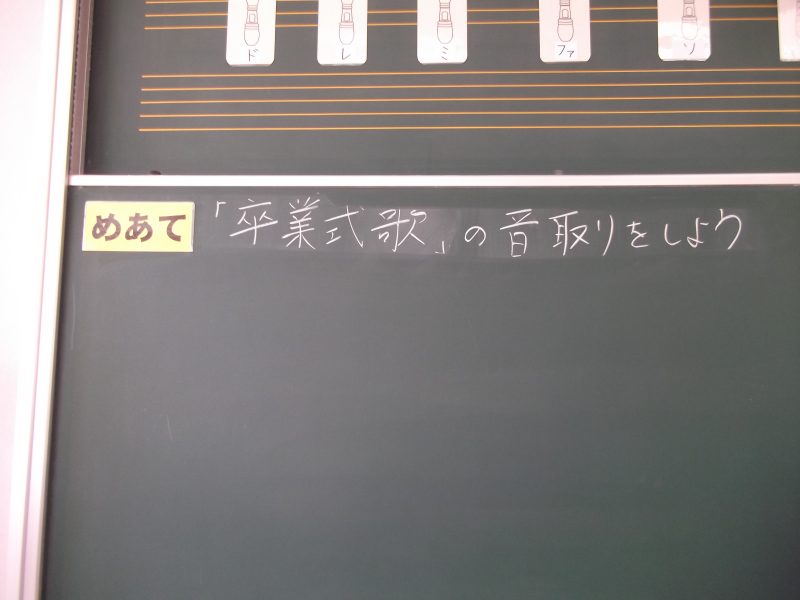 ド レ ミ ファ ソ
めあて 「卒業式歌」の音取りをしよう